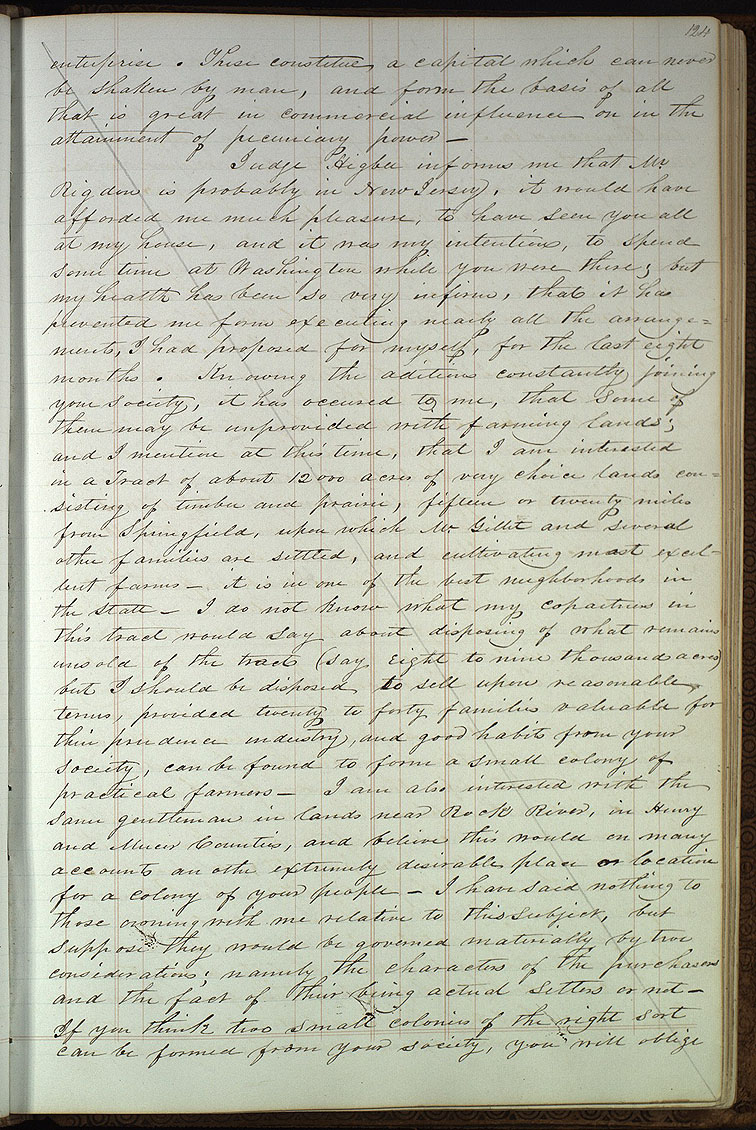 124
enterprise. These constitue, a capital which can never
be shaken by man, and form the basis of all
that is great in commercial influence or in the
attainment of pecuniary power —
Judge Higbee informs me that Mr
Rigdon is probably in New Jersey, it would have
afforded me much pleasure, to have seen you all
at my house, and it was my intention, to spend
some time at Washington while you were there; but
my health has been so very infirm, that it has
prevented me form executing nearly all the arrange=
ments, I had proposed for myself, for the last eight
months. Knowing the aditions constantly joining
your Society, it has occured to me, that some of
them may be unprovided with farming lands;
and I mention at this time, that I am interested
in a Tract of about 12000 acres of very choice lands con=
sisting of timber and prairie, fifteen or twenty miles
from Springfield, upon which Mr Gillet and several
other families are settled, and cultivating most excel=
lent farms — it is in one of the best neighborhoods in
the state — I do not know what my copartners in
this tract would say about disposing of what remains
unsold of the tract (say Eight to nine thousand acres)
but I should be disposed to sell upon reasonable
terms, provided twenty to forty families valuable for
their prudence industry, and good habits from your
society, can be found to form a small colony of
practical farmers — I am also interested with the
same gentleman in lands near Rock River, in Henry
and Mercer Counties, and believe this would on many
accounts an othe extremely desirable place or location
for a colony of your people — I have said nothing to
those owning with me relative to this subject, but
suppose they would be governed materially by two
considerations; namely the characters of the purchasers
and the fact of their being actual setlers or not —
If you think two small colonies of the right sort
can be formed from your society, you will oblige